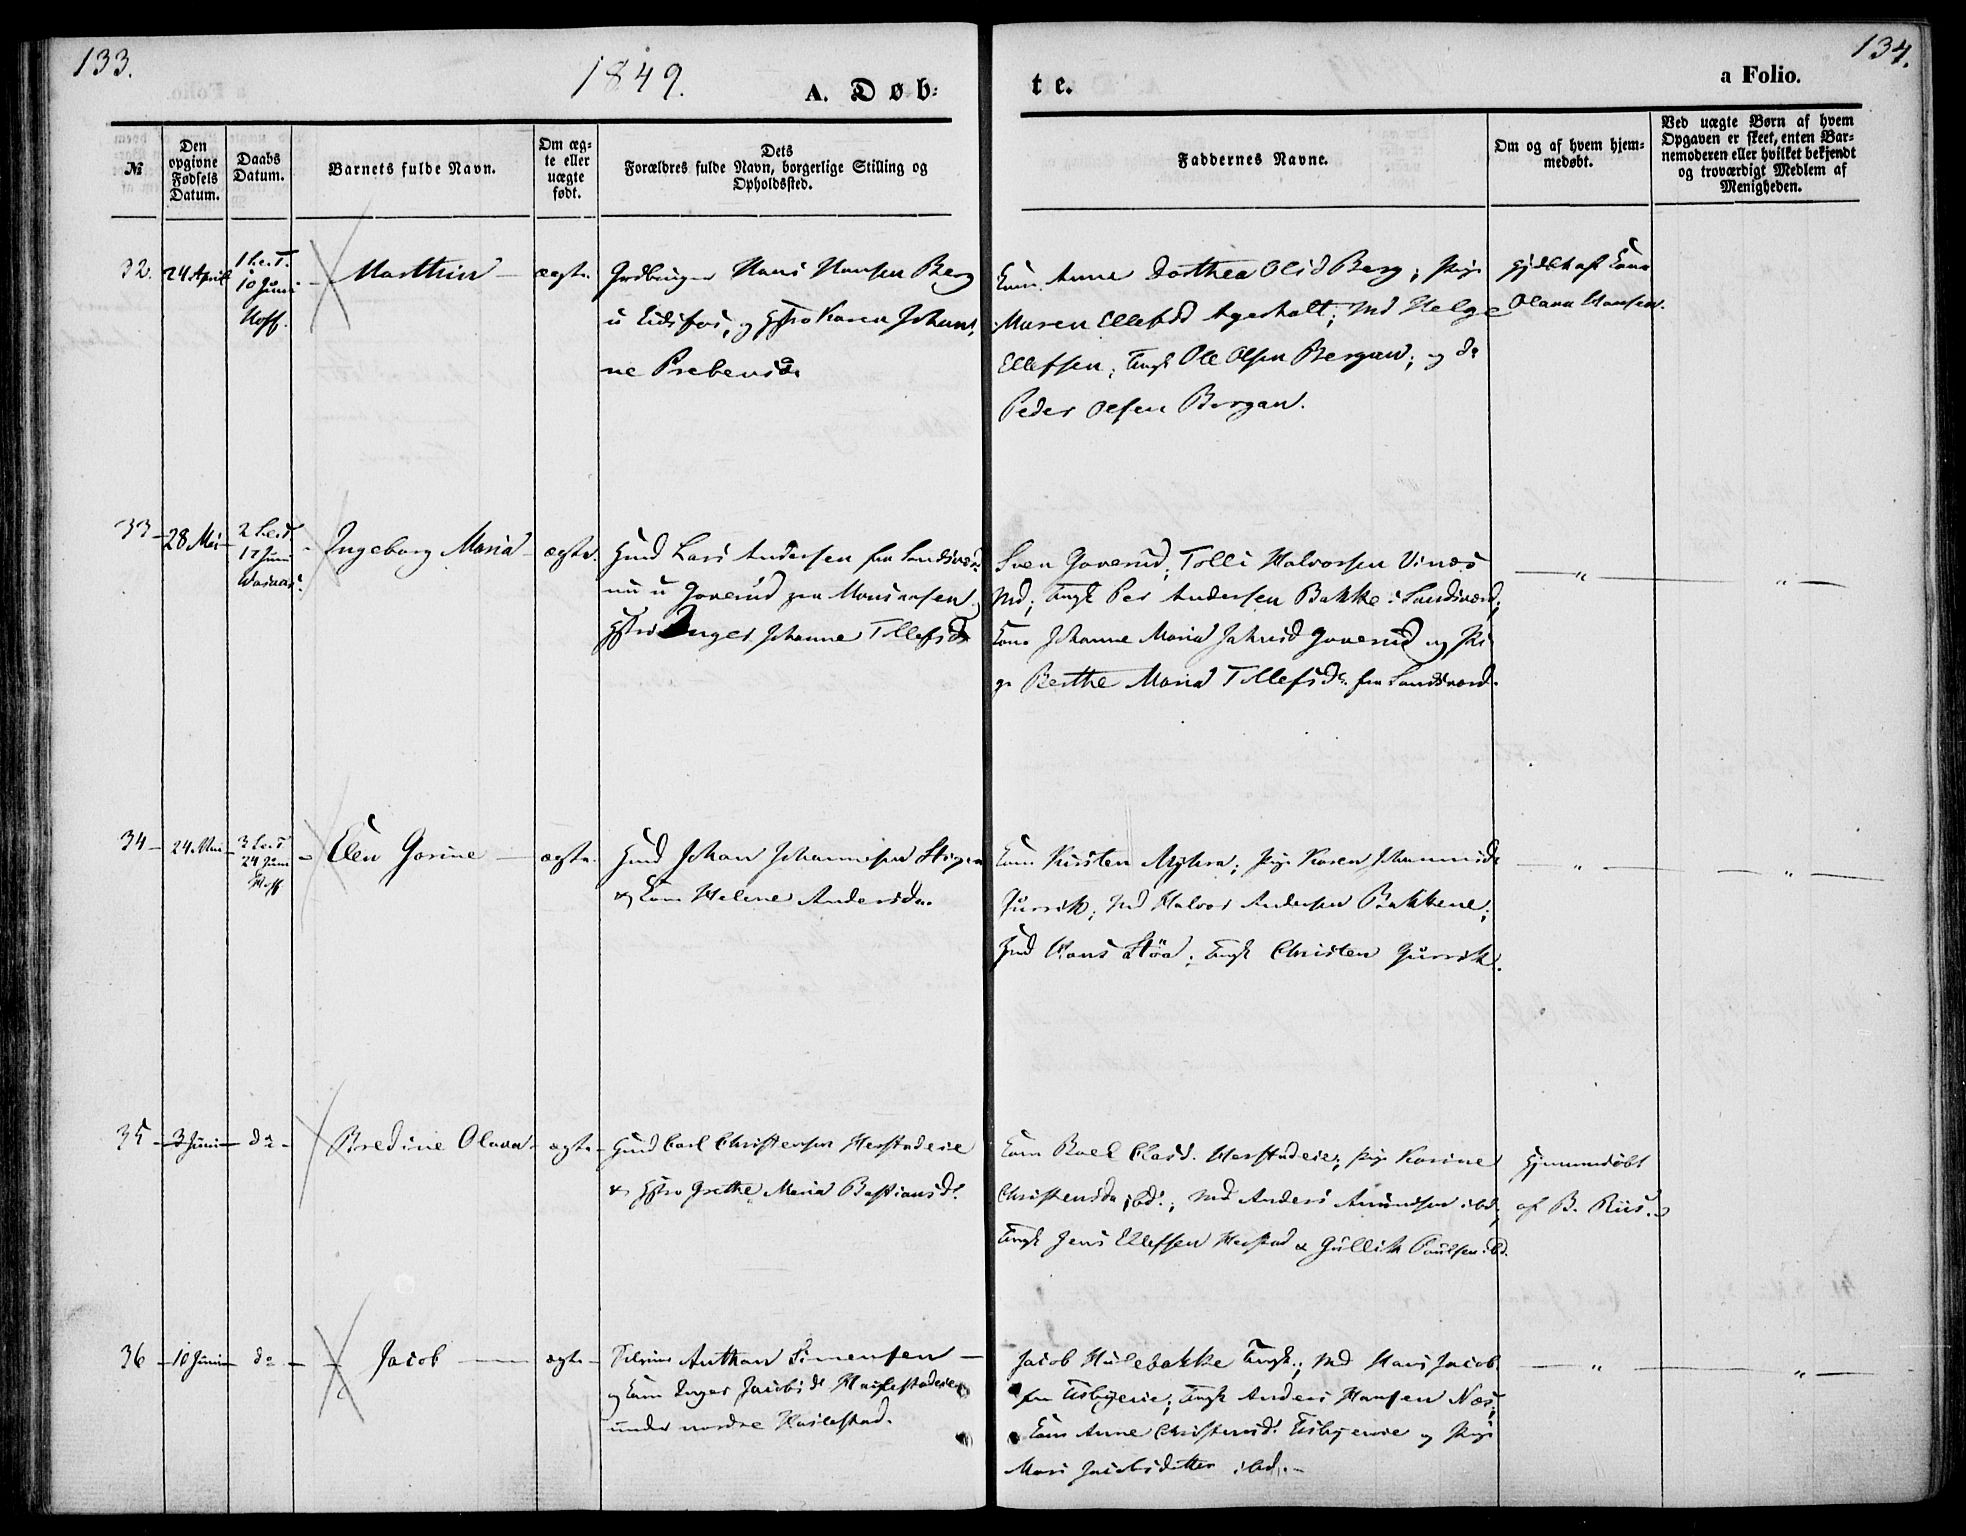 133.
1849.
A. Døb-
te.
a Folio.
134.
№
Den opgivne Fødsels Datum.
Daabs Datum.
Barnets fulde Navn.
Om æg-
te eller
uægte
født.
Dets
Forældres fulde Navn, borgerlige Stilling og
Opholdssted.
Faddernes Navne.
Om og af hvem hjem-
medøbt.
Ved uægte Børn af hvem
Opgaven er skeet, enten Bar-
nemoderen eller hvilket bekjendt
og troværdigt Medlem af
Menigheden.
32.
24 April
10 Juni
Hoff.
Marthin
ægte.
Hans Hansen Berg
u Eidsfos, og Hstro Karen Johan-
ne Prebensdr
Anne Dorthea Olsd Berg; Pige
Maren Ellefsd Agerholt; Md Helge
Ellefsen; Ungk Ole Olsen Bergan; og do
Peder Olsen Bergan.
Olava Hansen.
33
28 Mai
17 Juni
Ingeborg Maria
ægte.
Hmd Lars Andersen fra Sandsvær
nu u Goverud
Hstro Inger Johanne Tollefsdr
Sven Goverud; Tolli Halvorsen Vinæs
Md; Ungk Per Andersen Bakke i Sandsværd;
Kone Johanne Maria Goverud og Pi-
ge Berthe Maria Tollefsdr. fra Sandsværd.
34
24 Mai
24 Juni
Hoff
Elen Gorine
ægte.
Hmd Johan Johannesen
og Kone Helene Andersdr.
Kone Kirsten Myhra; Pige Karen Johannesdr
Md Halvor Andersen Bakkene;
Hmd Hans Støa; Ungk Christen
35
3 Juni
do
Bredine Olava
ægte
Hmd Carl Christensen Herstadeie
& Hstro Grethe Maria Bastiansdr.
Kone Boel Clasd. Herstadeie; Pige Karine
Christensdr ibd.; Md Anders Amundsen ibd;
Ungk Jens Ellefsen Herstad & Gullik Paulsen ibd.
Hjemmedøbt
af B. Riis.
36
10 Juni
do
Jacob
ægte
Anthon Simensen
og Kone Inger Jacobsdr
under nordre Haslestad.
Jacob Hulebakke Ungk; Md Hans Jacob-
sen; Ungk Anders Hansen Næs;
Kone Anne Christensd. og Pige
Mari Jacobsdatter ibd.